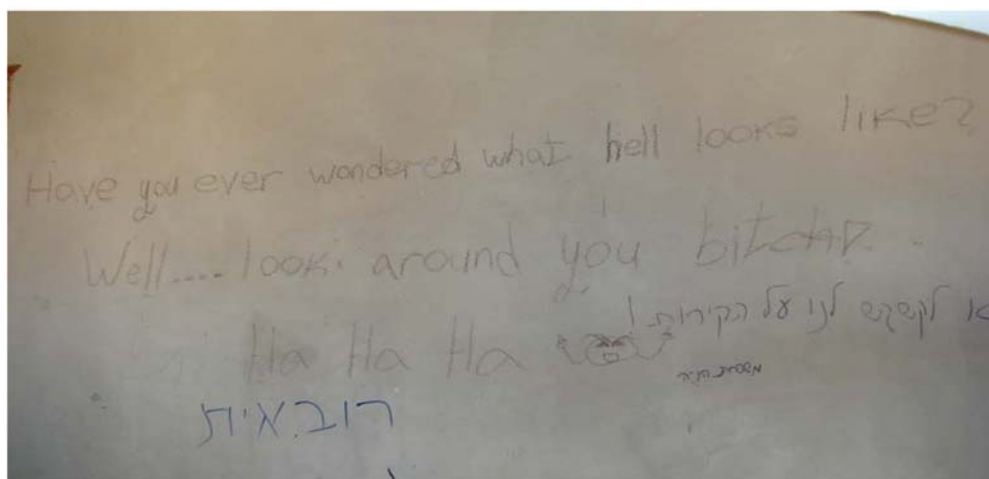 Have you ever wondered what hell looks like?
Well.... look around you bitchz.
לא לקשקש לנו על הקירות!
Ha Ha Ha
רובאית